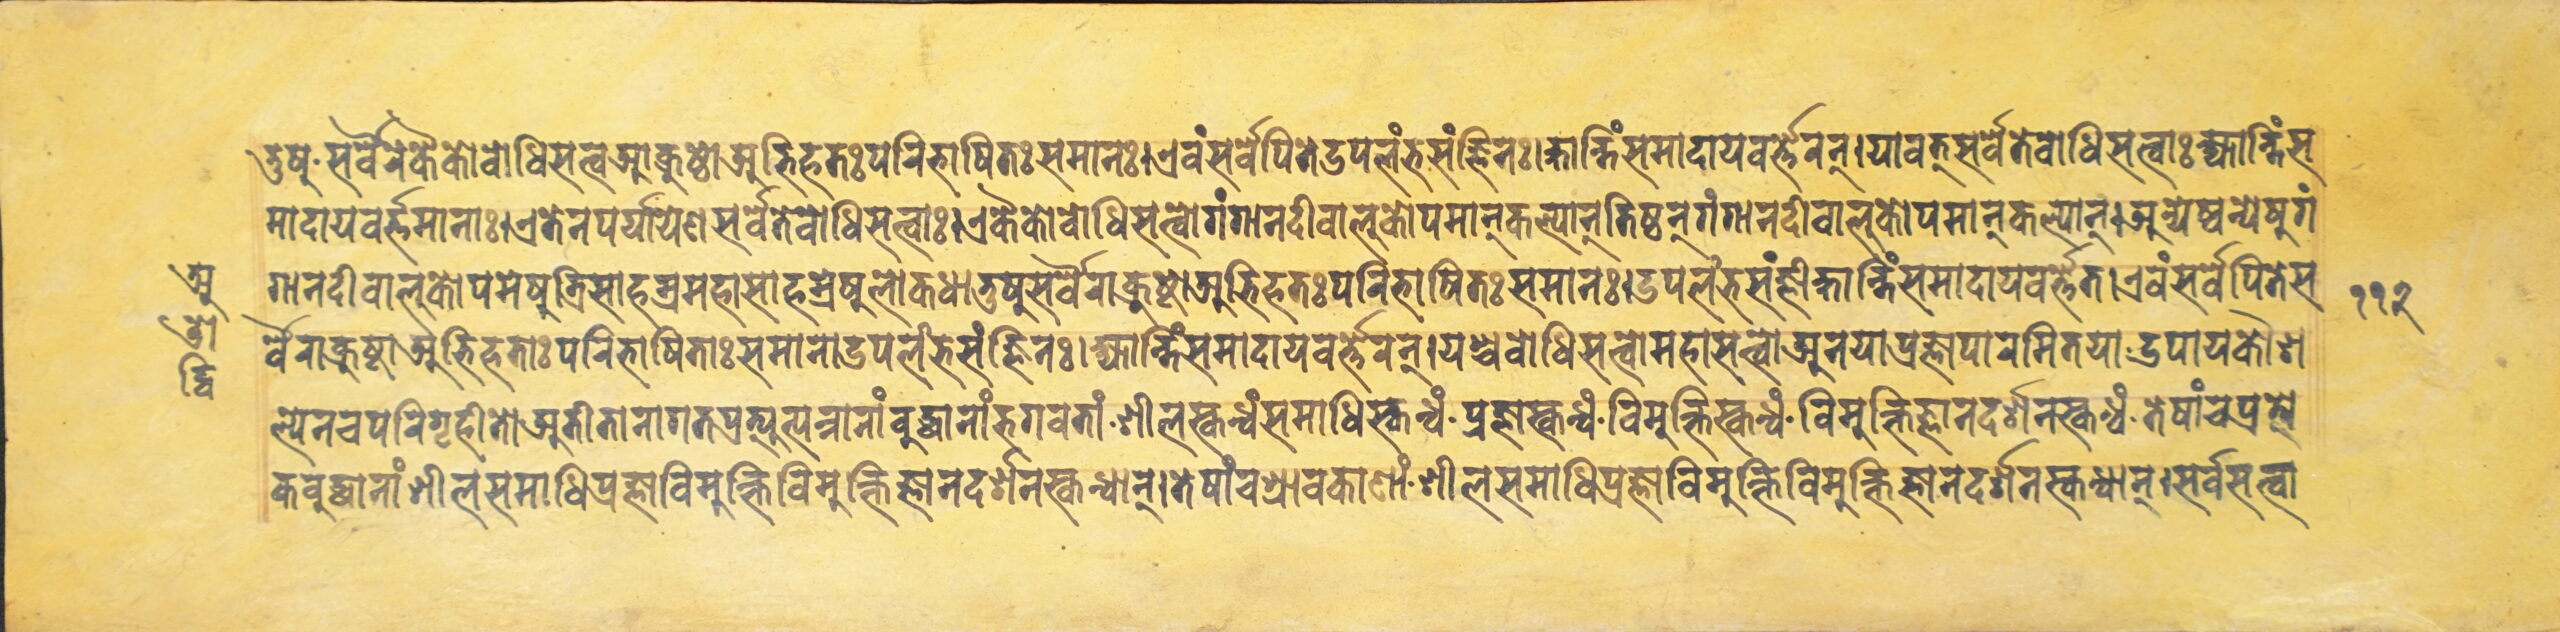 तुषु· सर्वैरेकैको बोधिसत्व आक्रुष्टो अभिहतः परिभाषितः समानः। एवं सर्वेपि ते उपलंभसंज्ञिनः। क्षान्तिं समादाय वर्त्तेरन्। यावत् सर्वे ते बोधिसत्वाः क्ष्यान्तिं स
मादाय वर्त्तमानाः। एतेन पर्यायेण सर्वे ते बोधिसत्वाः। एकैको बोधिसत्वो गंगानदीवालुकोपमान् कल्पान् तिष्ठन् गंगानदीवालुकोपमान् कल्पान्। अन्येष्वन्येषु गं
गानदीवालुकोपमेषु त्रिसाहस्रमहासाहस्रेषु लोकधातुषु सर्वैराक्रुष्टो अभिहतः परिभाषितः समानः। उपलंभसंज्ञी क्षान्तिं समादाय वर्त्तेत। एवं सर्वेपि ते स
र्वैराक्रुष्टा अभिहताः परिभाषिताः समाना उपलंभसंज्ञिनः। क्ष्यान्तिं समादाय वर्त्तेरन्। यश्च बोधिसत्वो महासत्वो अनया प्रज्ञापारमितया उपायकौश
ल्येन च परिगृहीतो अतीतानागतप्रत्युत्पन्नानां बुद्धानां भगवतां· शीलस्कन्धं समाधिस्कन्धं· प्रज्ञास्कन्धं· विमुक्तिस्कन्धं· विमुक्तिज्ञानदर्शनस्कन्धं· तेषां च प्रत्ये
कबुद्धानां शीलसमाधिप्रज्ञाविमुक्तिविमुक्तिज्ञानदर्शनस्कन्धान्। तेषां च श्रावकाणां· शीलसमाधिप्रज्ञाविमुक्तिविमुक्तिज्ञानदर्शनस्कन्धान्। सर्वसत्वा
अ
श
द्वि
११२